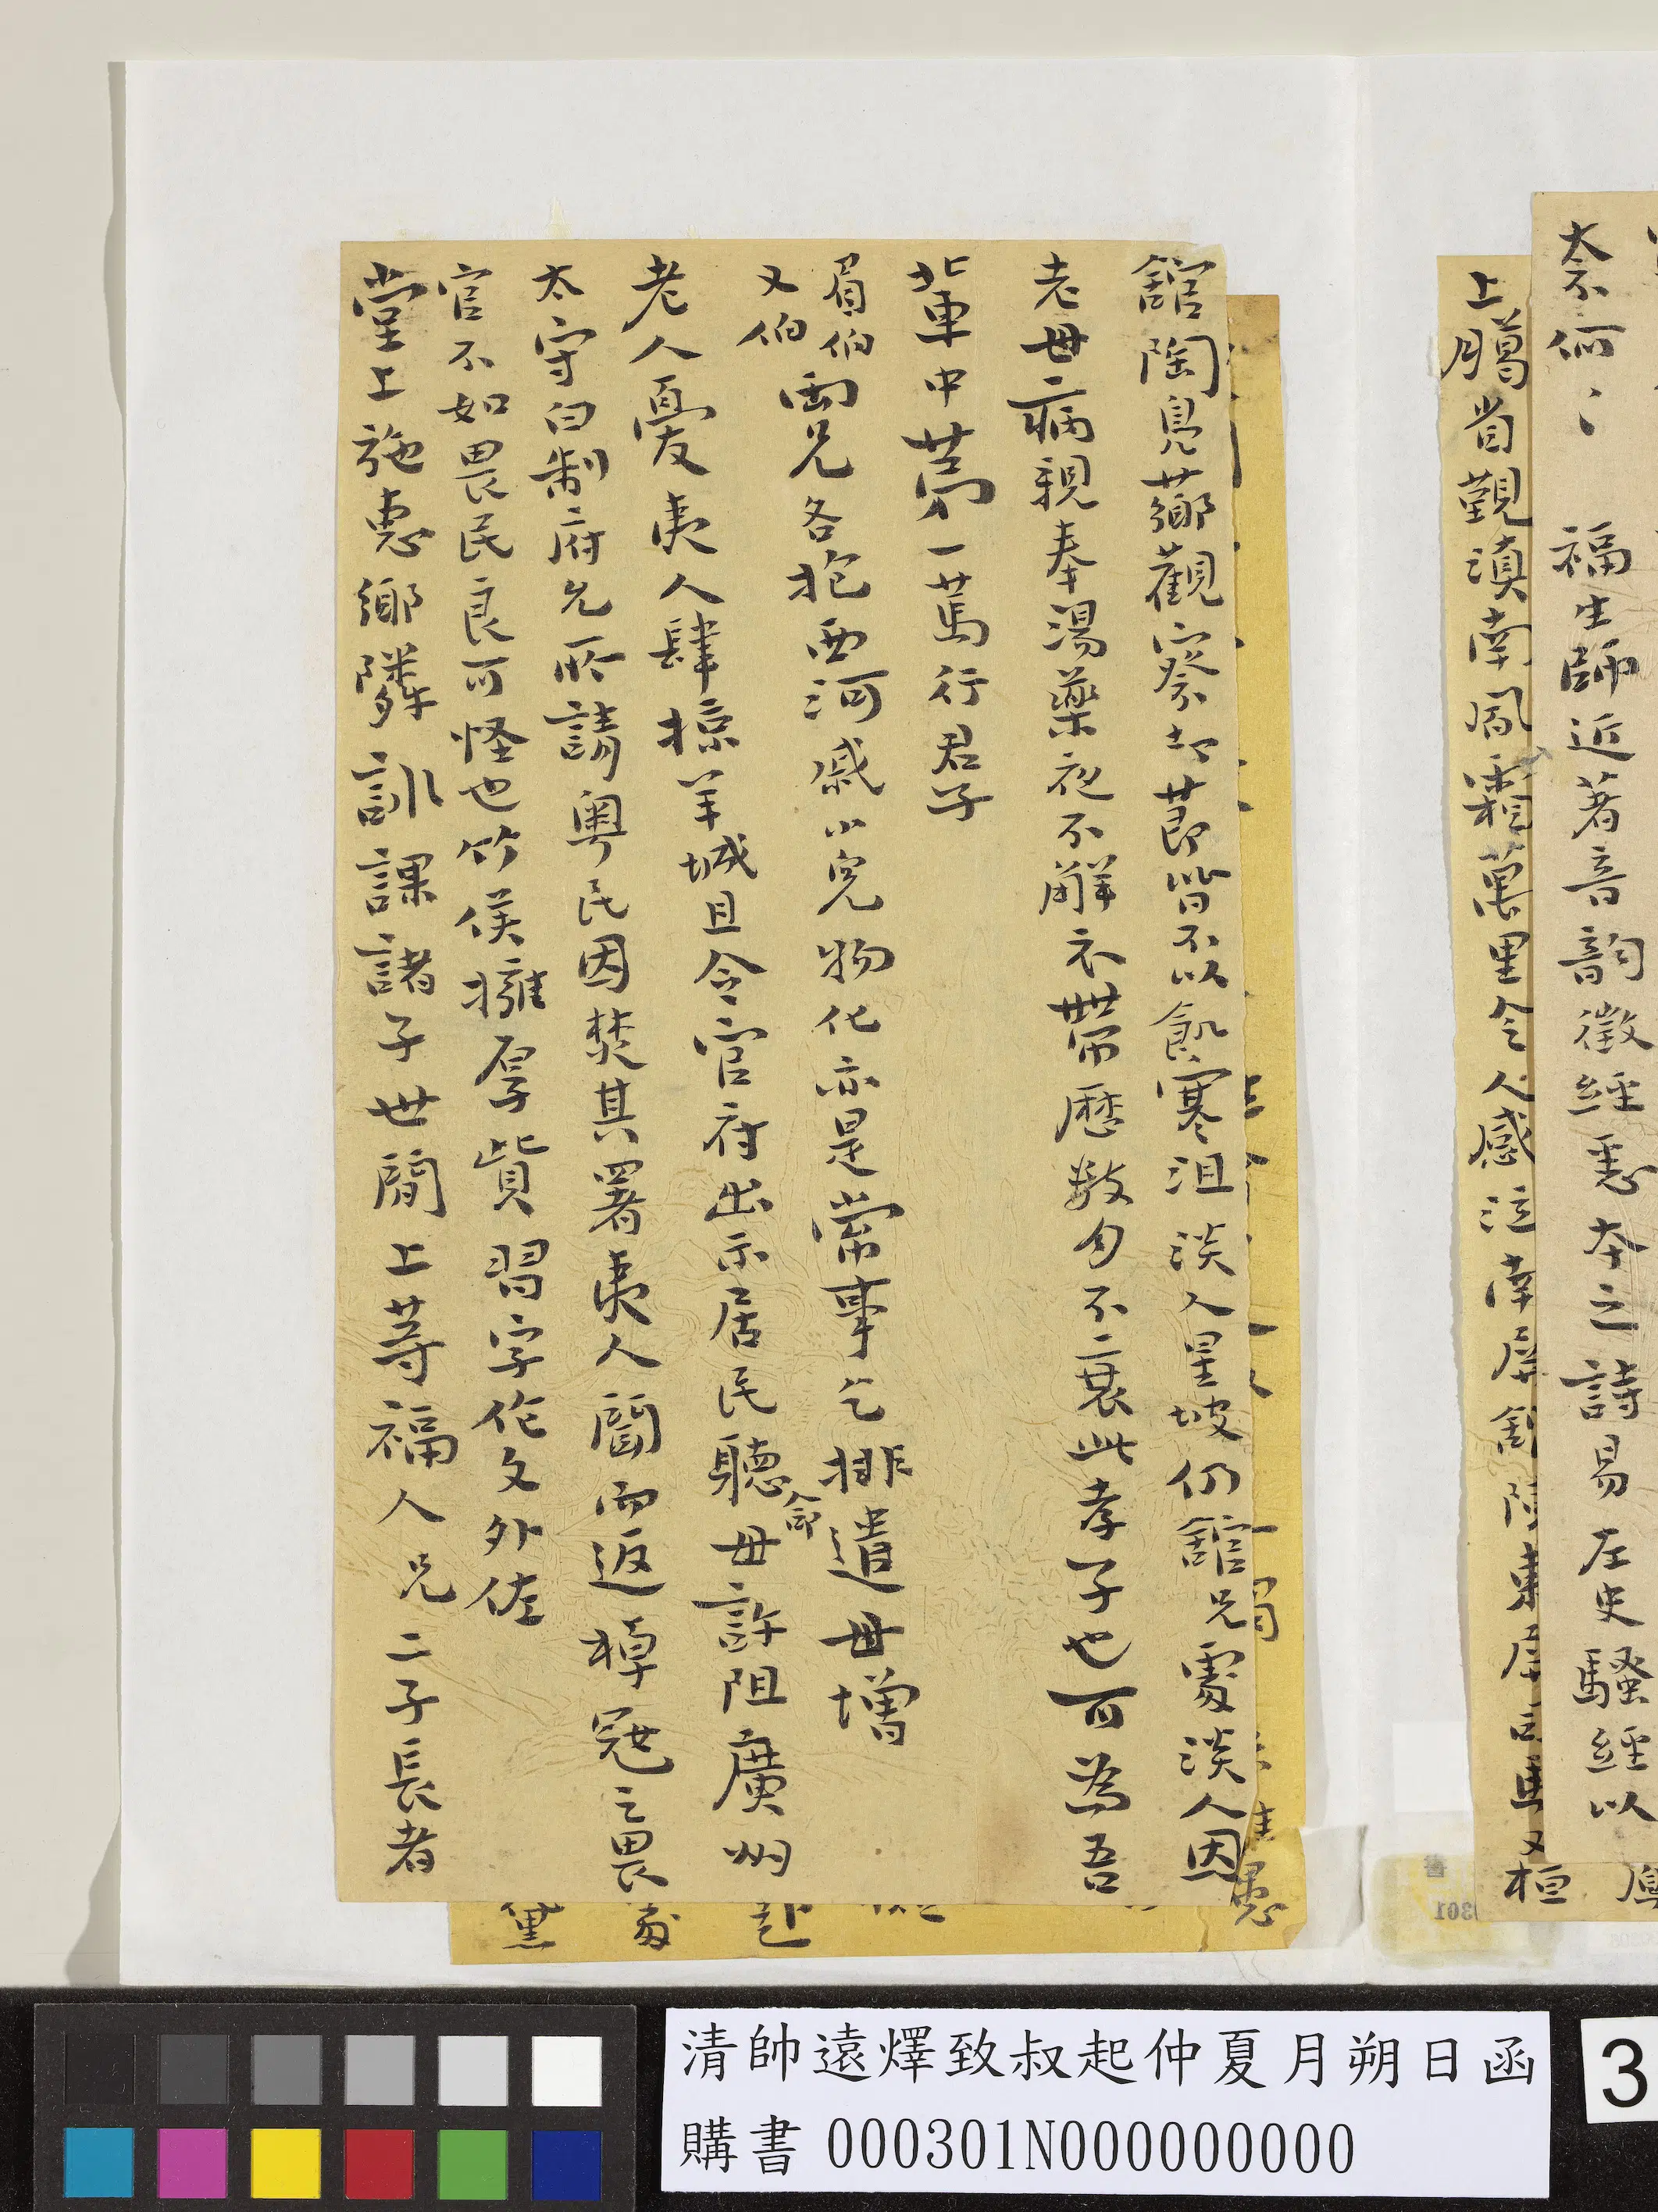 奈何〻 福生師近著音韵徵經惠本之詩易左史騷經以
上臈省觀滇南風霜萬里令人感泣南屏
又桓
館陶覓薌觀察却莭皆不以飢寒沮淡人星坡仍館兄處淡人因
老母病親奉湯藥夜不解衣帶歷數旬不衰此孝子也可為吾
輩中第一篤行君子
眉伯
又伯
兩兄各抱西河戚小兒物化亦是常事乞排遣毋增
老人憂夷人肆掠羊城且令官府出示居民聽命毋許阻廣州
太守白制府允所請粵民因焚其署夷人聞而返棹冠之畏
官不如畏民良可怪也竹侯擁厚貲習字作文外佐
堂上施惠鄉隣訓課諸子世間上等福人兄二子長者
清帥遠燡致叔起仲夏月朔日函
購書 000301N000000000
3